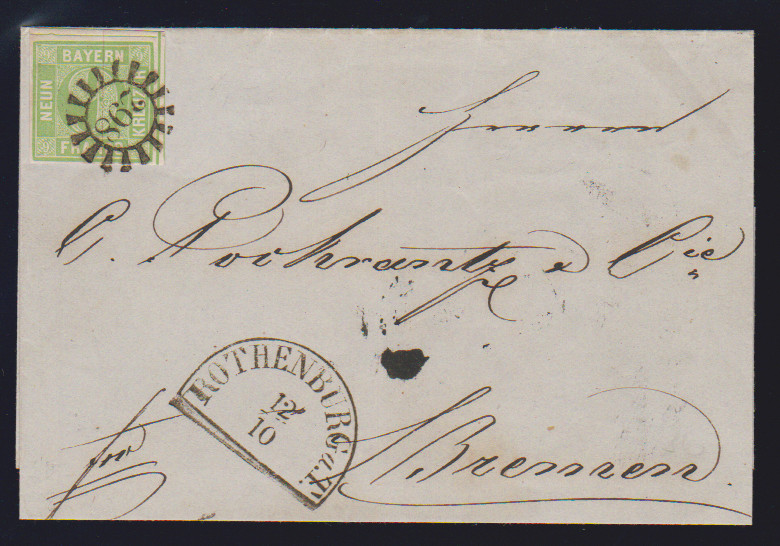 BAYERN
NEUN
KREUZER
FR
9
9
9
Herren
C. Pockrantz & Cie
ROTHENBURG a.T.
12
10
fro
Bremen